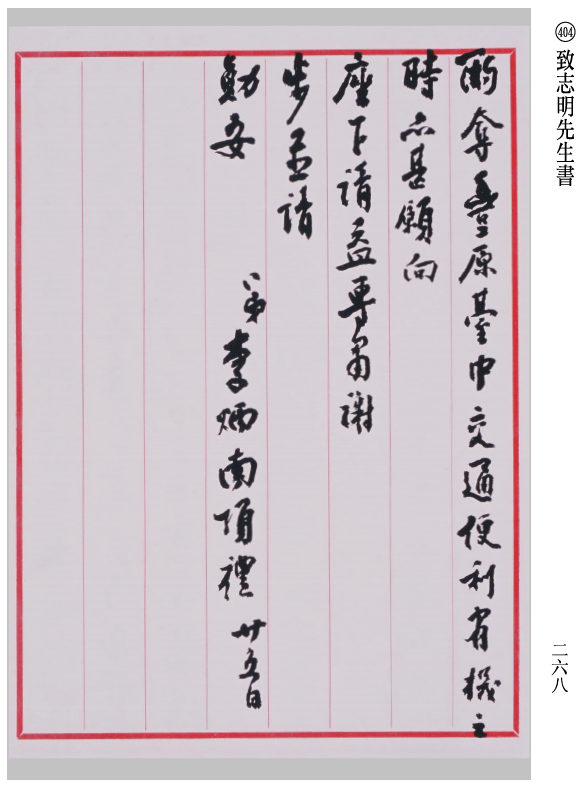 404 致志明先生書
酌奪豐原臺中交通便利有機之
時亦甚願向
座下請益專肅謝
步並請
勛安
弟李炳南頂禮 廿五日
二六八